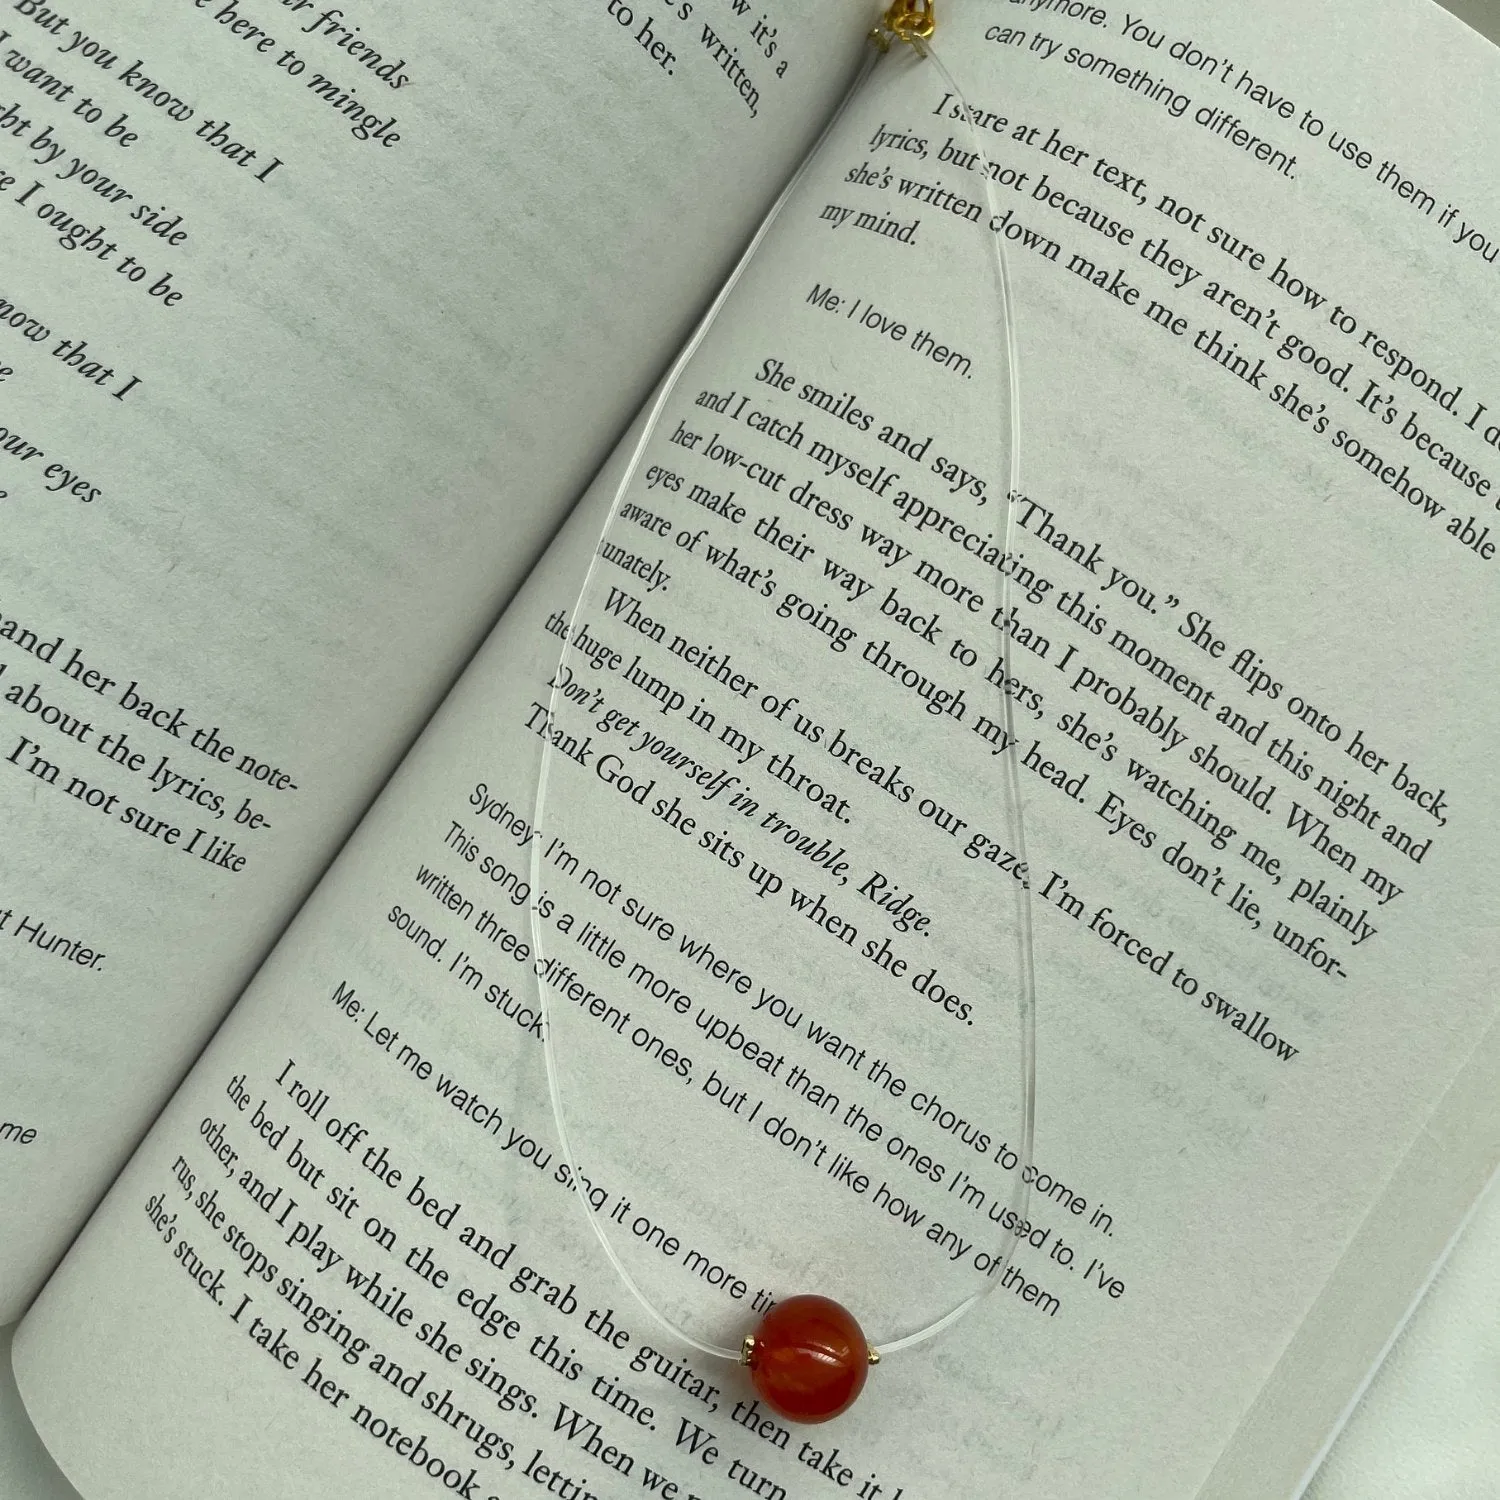 ur friends
e here to mingle
But you know that I
I want to be
ht by your side
e I ought to be
now that I
e
our eyes
e
w it's a
e's written,
to her.
and her back the note-
l about the lyrics, be-
I'm not sure I like
t Hunter.
me
anymore. You don't have to use them if you
can try something different.
I stare at her text, not sure how to respond. I do
lyrics, but not because they aren't good. It's because t
she's written down make me think she's somehow able
my mind.
Me: I love them.
She smiles and says, “Thank you.” She flips onto her back,
and I catch myself appreciating this moment and this night and
her low-cut dress way more than I probably should. When my
eyes make their way back to hers, she's watching me, plainly
aware of what's going through my head. Eyes don't lie, unfor-
tunately.
When neither of us breaks our gaze, I'm forced to swallow
the huge lump in my throat.
Don't get yourself in trouble, Ridge.
Thank God she sits up when she does.
Sydney: I'm not sure where you want the chorus to come in.
This song is a little more upbeat than the ones I'm used to. I've
written three different ones, but I don't like how any of them
sound. I'm stuck.
Me: Let me watch you sing it one more tim
I roll off the bed and grab the guitar, then take it b
the bed but sit on the edge this time. We turn
other, and I play while she sings. When we r
rus, she stops singing and shrugs, lettin
she's stuck. I take her notebook a